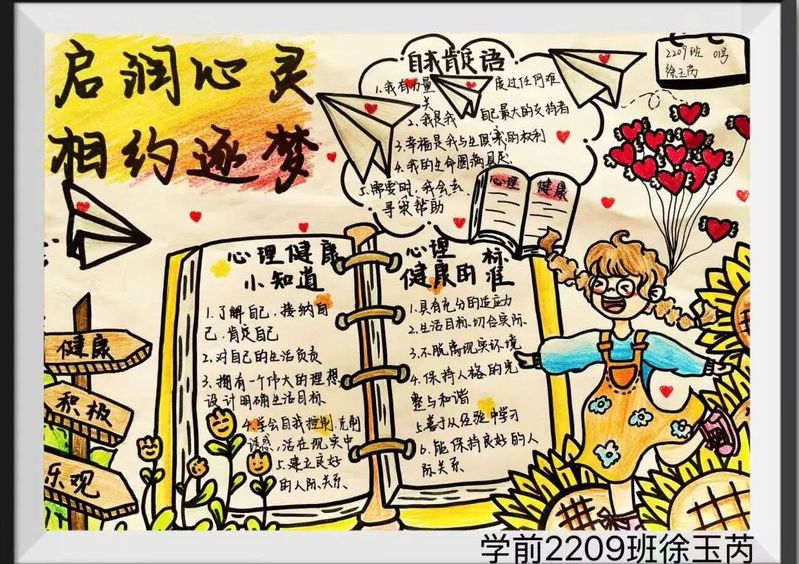 启润心灵
相约逐梦
自我肯定语
1.我有力量 度过任何难
关
2.我是我 自己最大的支持者
3.幸福是我与生俱来的权利
4.我的生命圆满具足
5.需要时,我会去
寻求帮助
2209班 01号
徐玉芮
心理 健康
心理健康
小知道
1.了解自己,接纳自
己,肯定自己
2.对自己的生活负责
3.拥有一个伟大的理想
设计明确生活目标
4.学会自我控制,克制
诱惑,活在现实中
5.建立良好
的人际关系、
心理
健康的标准
1.具有充分的适应力
2.生活目标切合实际、
3.不脱离现实环境
4.保持人格的完
整与和谐
5.善于从经验中学习
6.能保持良好的人
际关系、
健康
积极
乐观
学前2209班徐玉芮